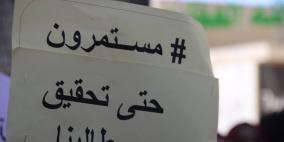 # مستمرون
حتى تحقيق